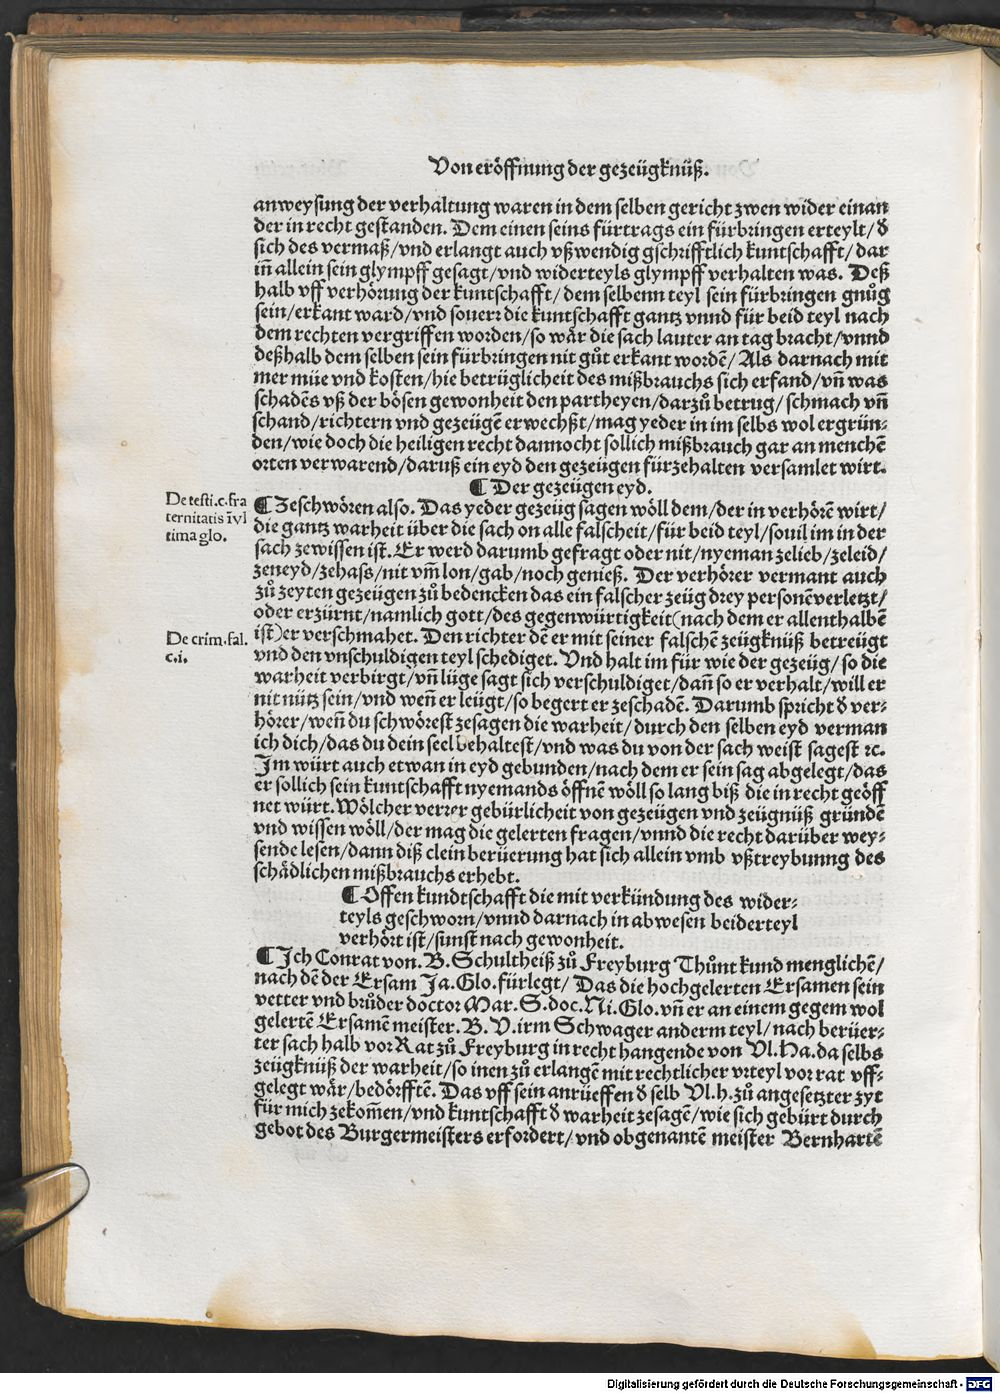 Von eröffnung der gezeügknüß.
anweysung der verhaltung waren in dem selben gericht zwen wider einan
der in recht gestanden. Dem einen seins fürtrags ein fürbringen erteylt/ď
sich des vermaß/vnd erlangt auch vßwendig gschrifftlich kuntschafft/dar
iñ allein sein glympff gesagt/vnd widerteyls glympff verhalten was. Deß
halb vff verhörung der kuntschafft/dem selbenn teyl sein fürbringen gnůg
sein/erkant ward/vnd souerr die kuntschafft gantz vnnd für beid teyl nach
dem rechten vergriffen worden/so wår die sach lauter an tag bracht/vnnd
deßhalb dem selben sein fürbringen nit gůt erkant wordē/Als darnach mit
mer müe vnd kosten/hie betrüglicheit des mißbrauchs sich erfand/vñ was
schadēs vß der bösen gewonheit den partheyen/darzů betrug/schmach vñ
schand/richtern vnd gezeügē erwechßt/mag yeder in im selbs wol ergrün-
den/wie doch die heiligen recht dannocht sollich mißbrauch gar an menchē
orten verwarend/daruß ein eyd den gezeügen fürzehalten versamlet wirt.
¶ Der gezeügen eyd.
De testi.c.fra
ternitatis ī vl
tima glo.
¶ Zeschwören also. Das yeder gezeüg sagen wöll dem/der in verhörē wirt/
die gantz warheit über die sach on alle falscheit/für beid teyl/souil im in der
sach zewissen ist. Er werd darumb gefragt oder nit/nyeman zelieb/zeleid/
zeneyd/zehass/nit vm̄ lon/gab/noch genieß. Der verhörer vermant auch
zů zeyten gezeügen zů bedencken das ein falscher zeüg drey personē verletzt/
oder erzürnt/namlich gott/des gegenwürtigkeit(nach dem er allenthalbē
De crim.fal.
c.i.
ist)er verschmahet. Den richter dē er mit seiner falschē zeügknüß betreügt
vnd den vnschuldigen teyl schediget. Vnd halt im für wie der gezeüg/so die
warheit verbirgt/vñ lüge sagt sich verschuldiget/dañ so er verhalt/will er
nit nütz sein/vnd weñ er leügt/so begert er zeschadē. Darumb spricht ď ver-
hörer/weñ du schwörest zesagen die warheit/durch den selben eyd verman
ich dich/das du dein seel behaltest/vnd was du von der sach weist sagest ꝛc.
Im würt auch etwan in eyd gebunden/nach dem er sein sag abgelegt/das
er sollich sein kuntschafft nyemands öffnē wöll so lang biß die in recht geöff
net würt. Wölcher verrer gebürlicheit von gezeügen vnd zeügnüß gründē
vnd wissen wöll/der mag die gelerten fragen/vnnd die recht darüber wey-
sende lesen/dann diß clein berüerung hat sich allein vmb vßtreybunng des
schådlichen mißbrauchs erhebt.
¶ Offen kundtschafft die mit verkündung des wider-
teyls geschworn/vnnd darnach in abwesen beiderteyl
verhört ist/sunst nach gewonheit.
¶ Ich Conrat von. B. Schultheiß zů Freyburg Thůnt kund menglichē/
nach dē der Ersam Ja. Glo. fürlegt/ Das die hochgelerten Ersamen sein
vetter vnd brůder doctor Mar. S. doc. Ni. Glo. vñ er an einem gegem wol
gelertē Ersamē meister. B. V. irm Schwager anderm teyl/nach berüer-
ter sach halb vor Rat zů Freyburg in recht hangende von Vl. Ha. da selbs
zeügknüß der warheit/so inen zů erlangē mit rechtlicher vrteyl vor rat vff-
gelegt wår/bedörfftē. Das vff sein anrüeffen ď selb Vl. h. zů angesetzter zyt
für mich zekom̄en/vnd kuntschafft ď warheit zesagē/wie sich gebürt durch
gebot des Burgermeisters erfordert/vnd obgenantē meister Bernhartē
Digitalisierung gefördert durch die Deutsche Forschungsgemeinschaft - DFG